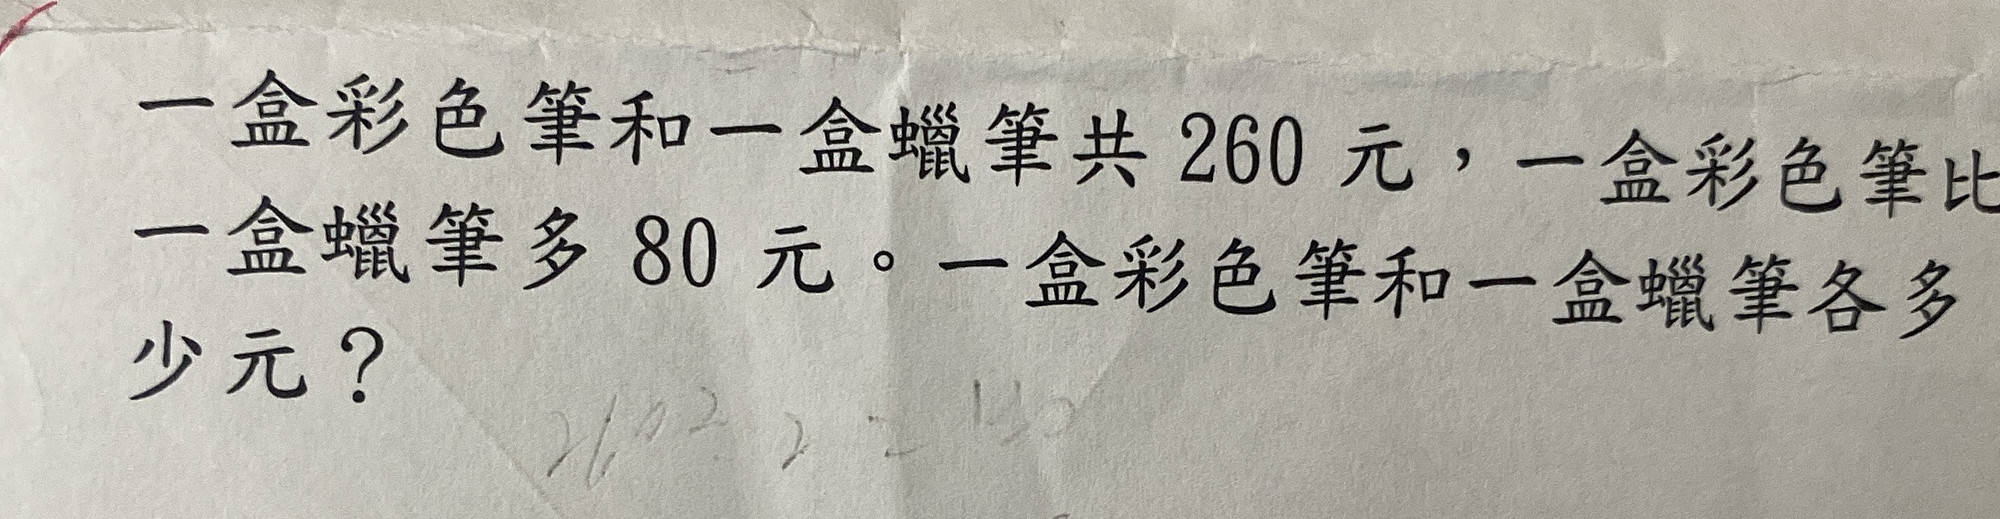 一盒彩色筆和一盒蠟筆共 260 元，一盒彩色筆比
一盒蠟筆多 80 元。一盒彩色筆和一盒蠟筆各多
少元？